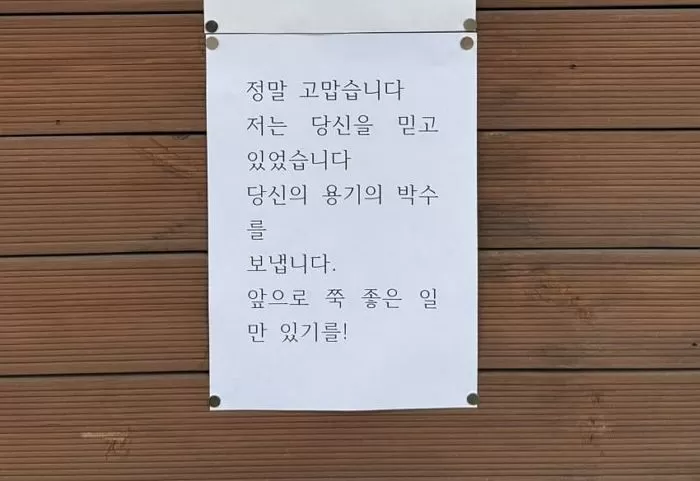 정말 고맙습니다
저는 당신을 믿고
있었습니다
당신의 용기의 박수
를
보냅니다.
앞으로 쭉 좋은 일
만 있기를!